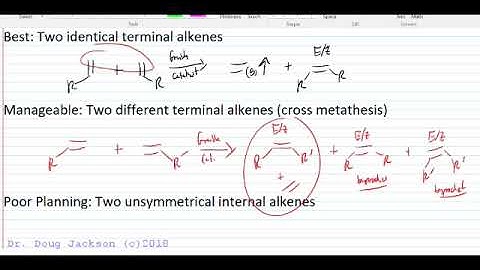 Best: Two identical terminal alkenes
Grubbs
E/Z
R + R catalyst (g) + R R
Manageable: Two different terminal alkenes (cross metathesis)
E/Z E/Z E/Z
R + R' Cat. R R' + R R + R' R'
+ byproduct byproduct
Poor Planning: Two unsymmetrical internal alkenes
Dr. Doug Jackson (c)2018